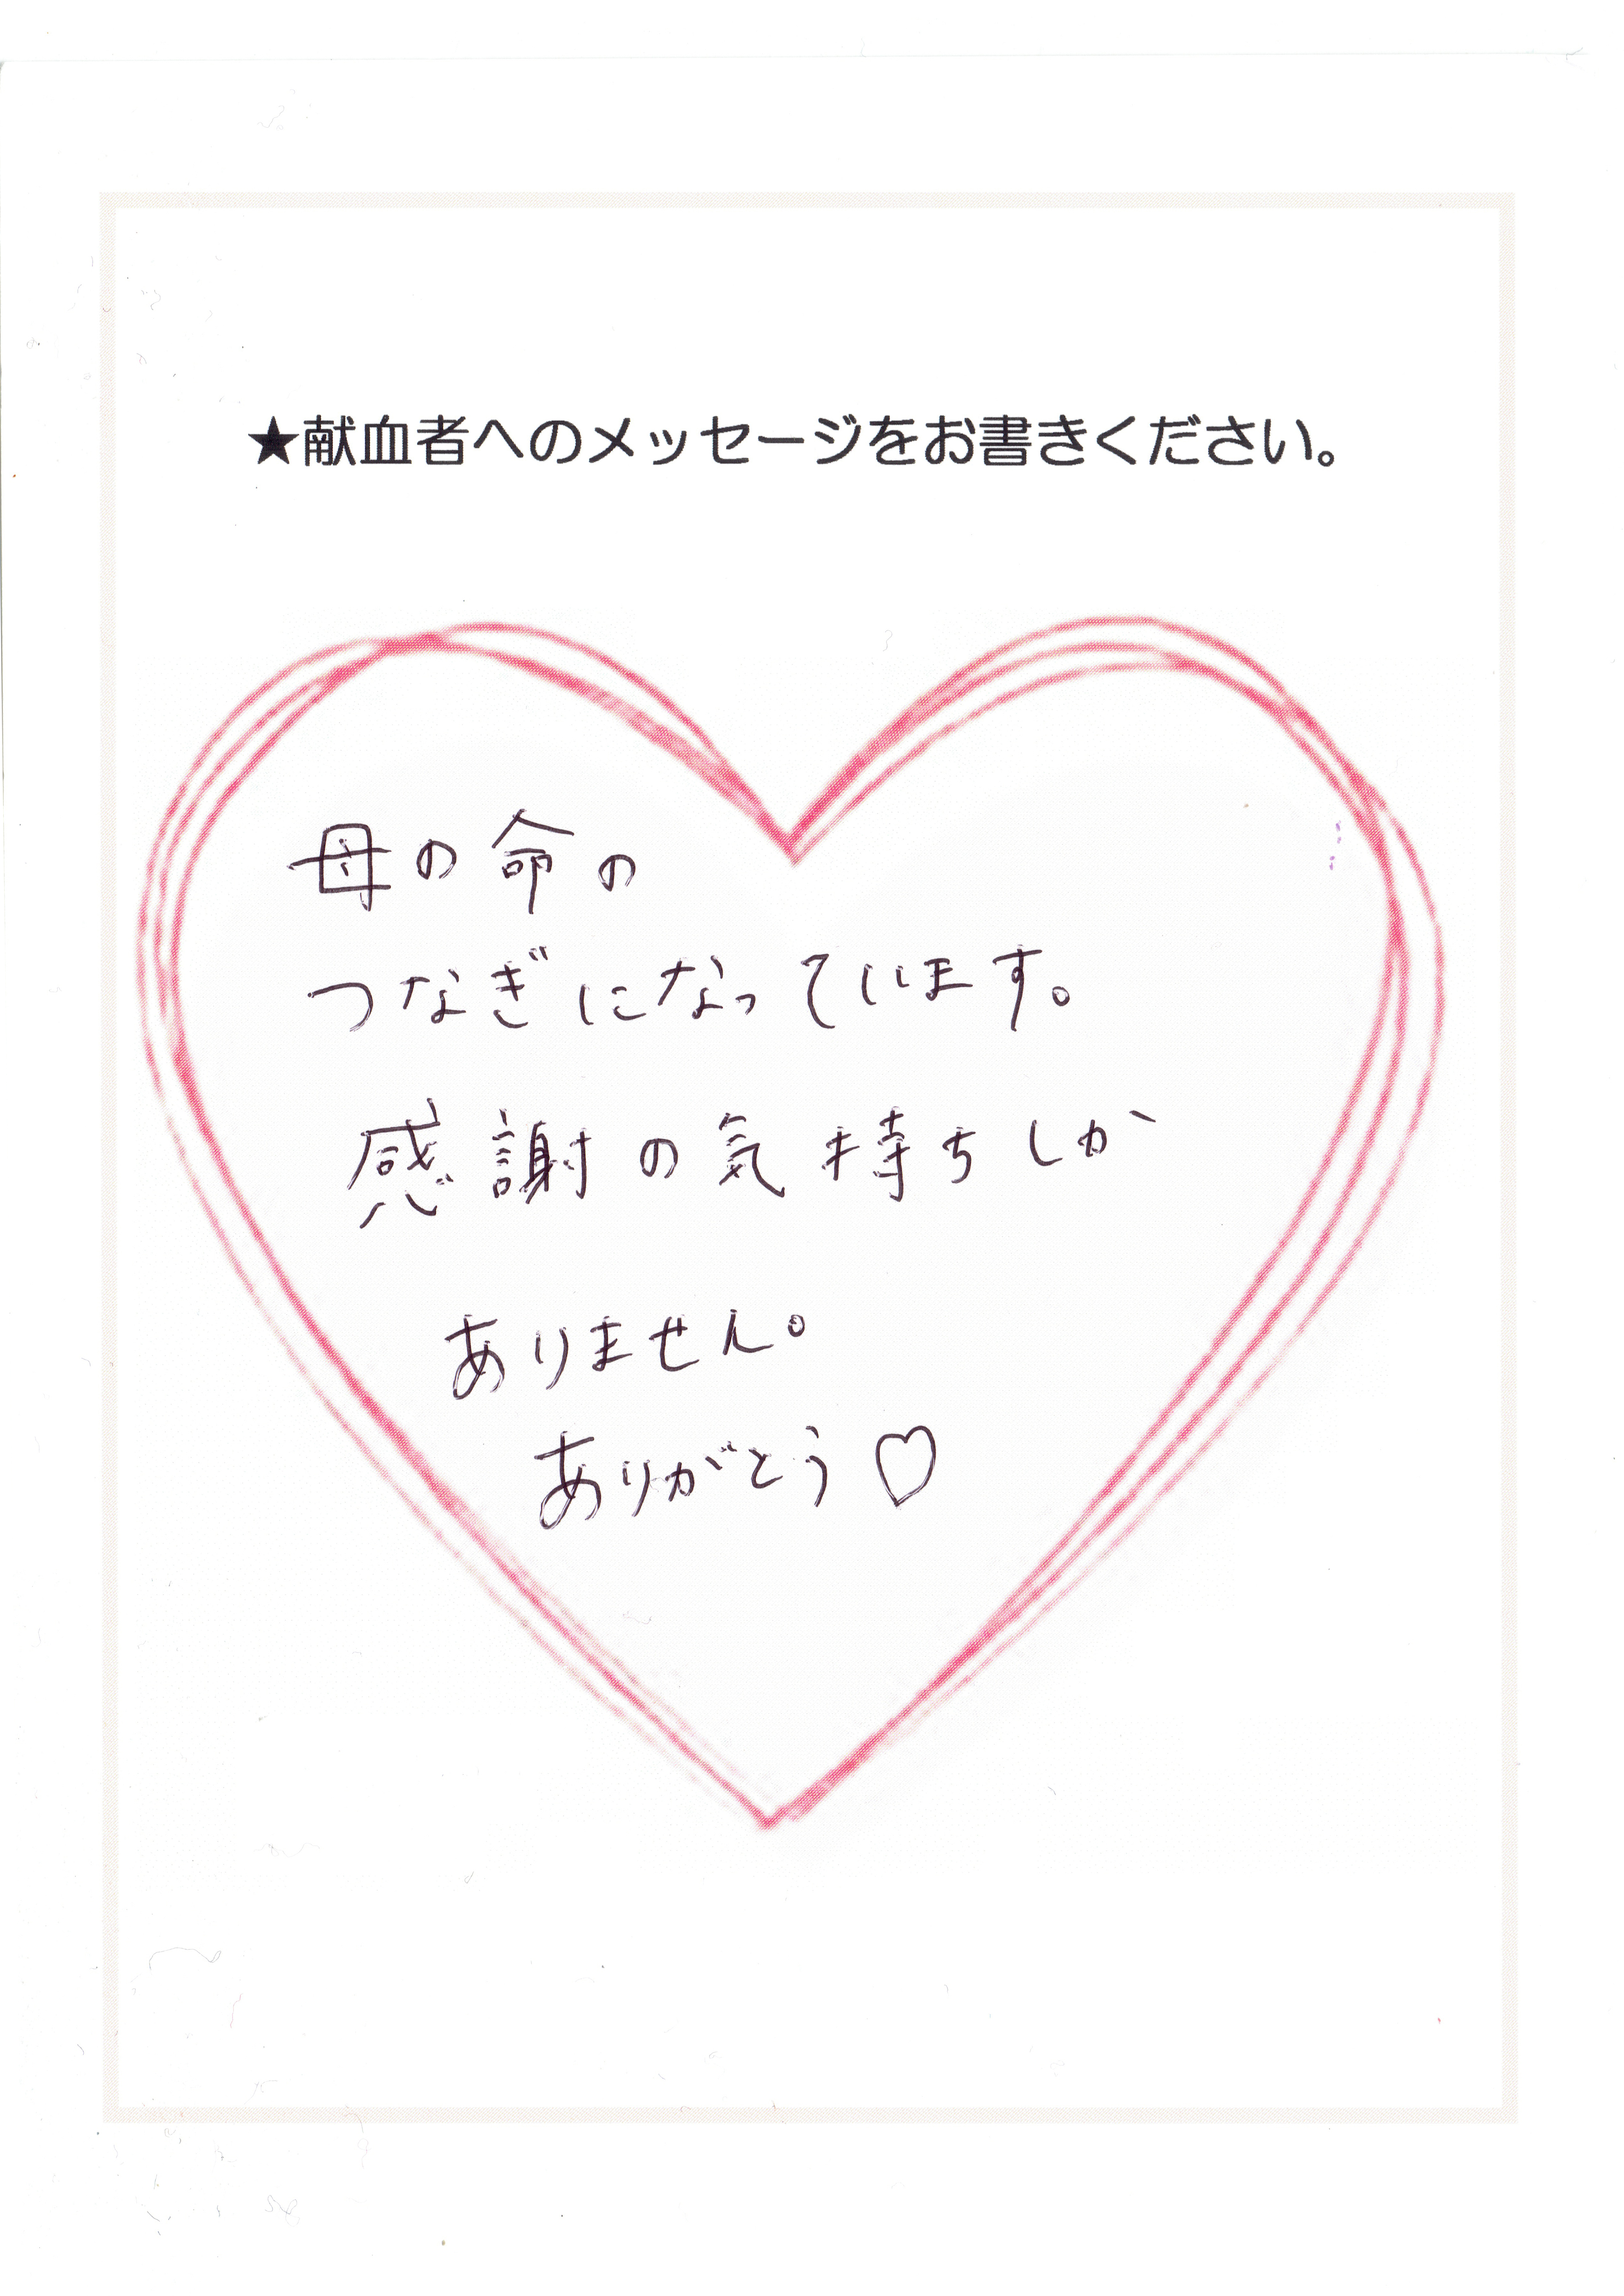 ★献血者へのメッセージをお書きください。
母の命の
つなぎになっています。
感謝の気持ちしか
ありません。
ありがとう♡